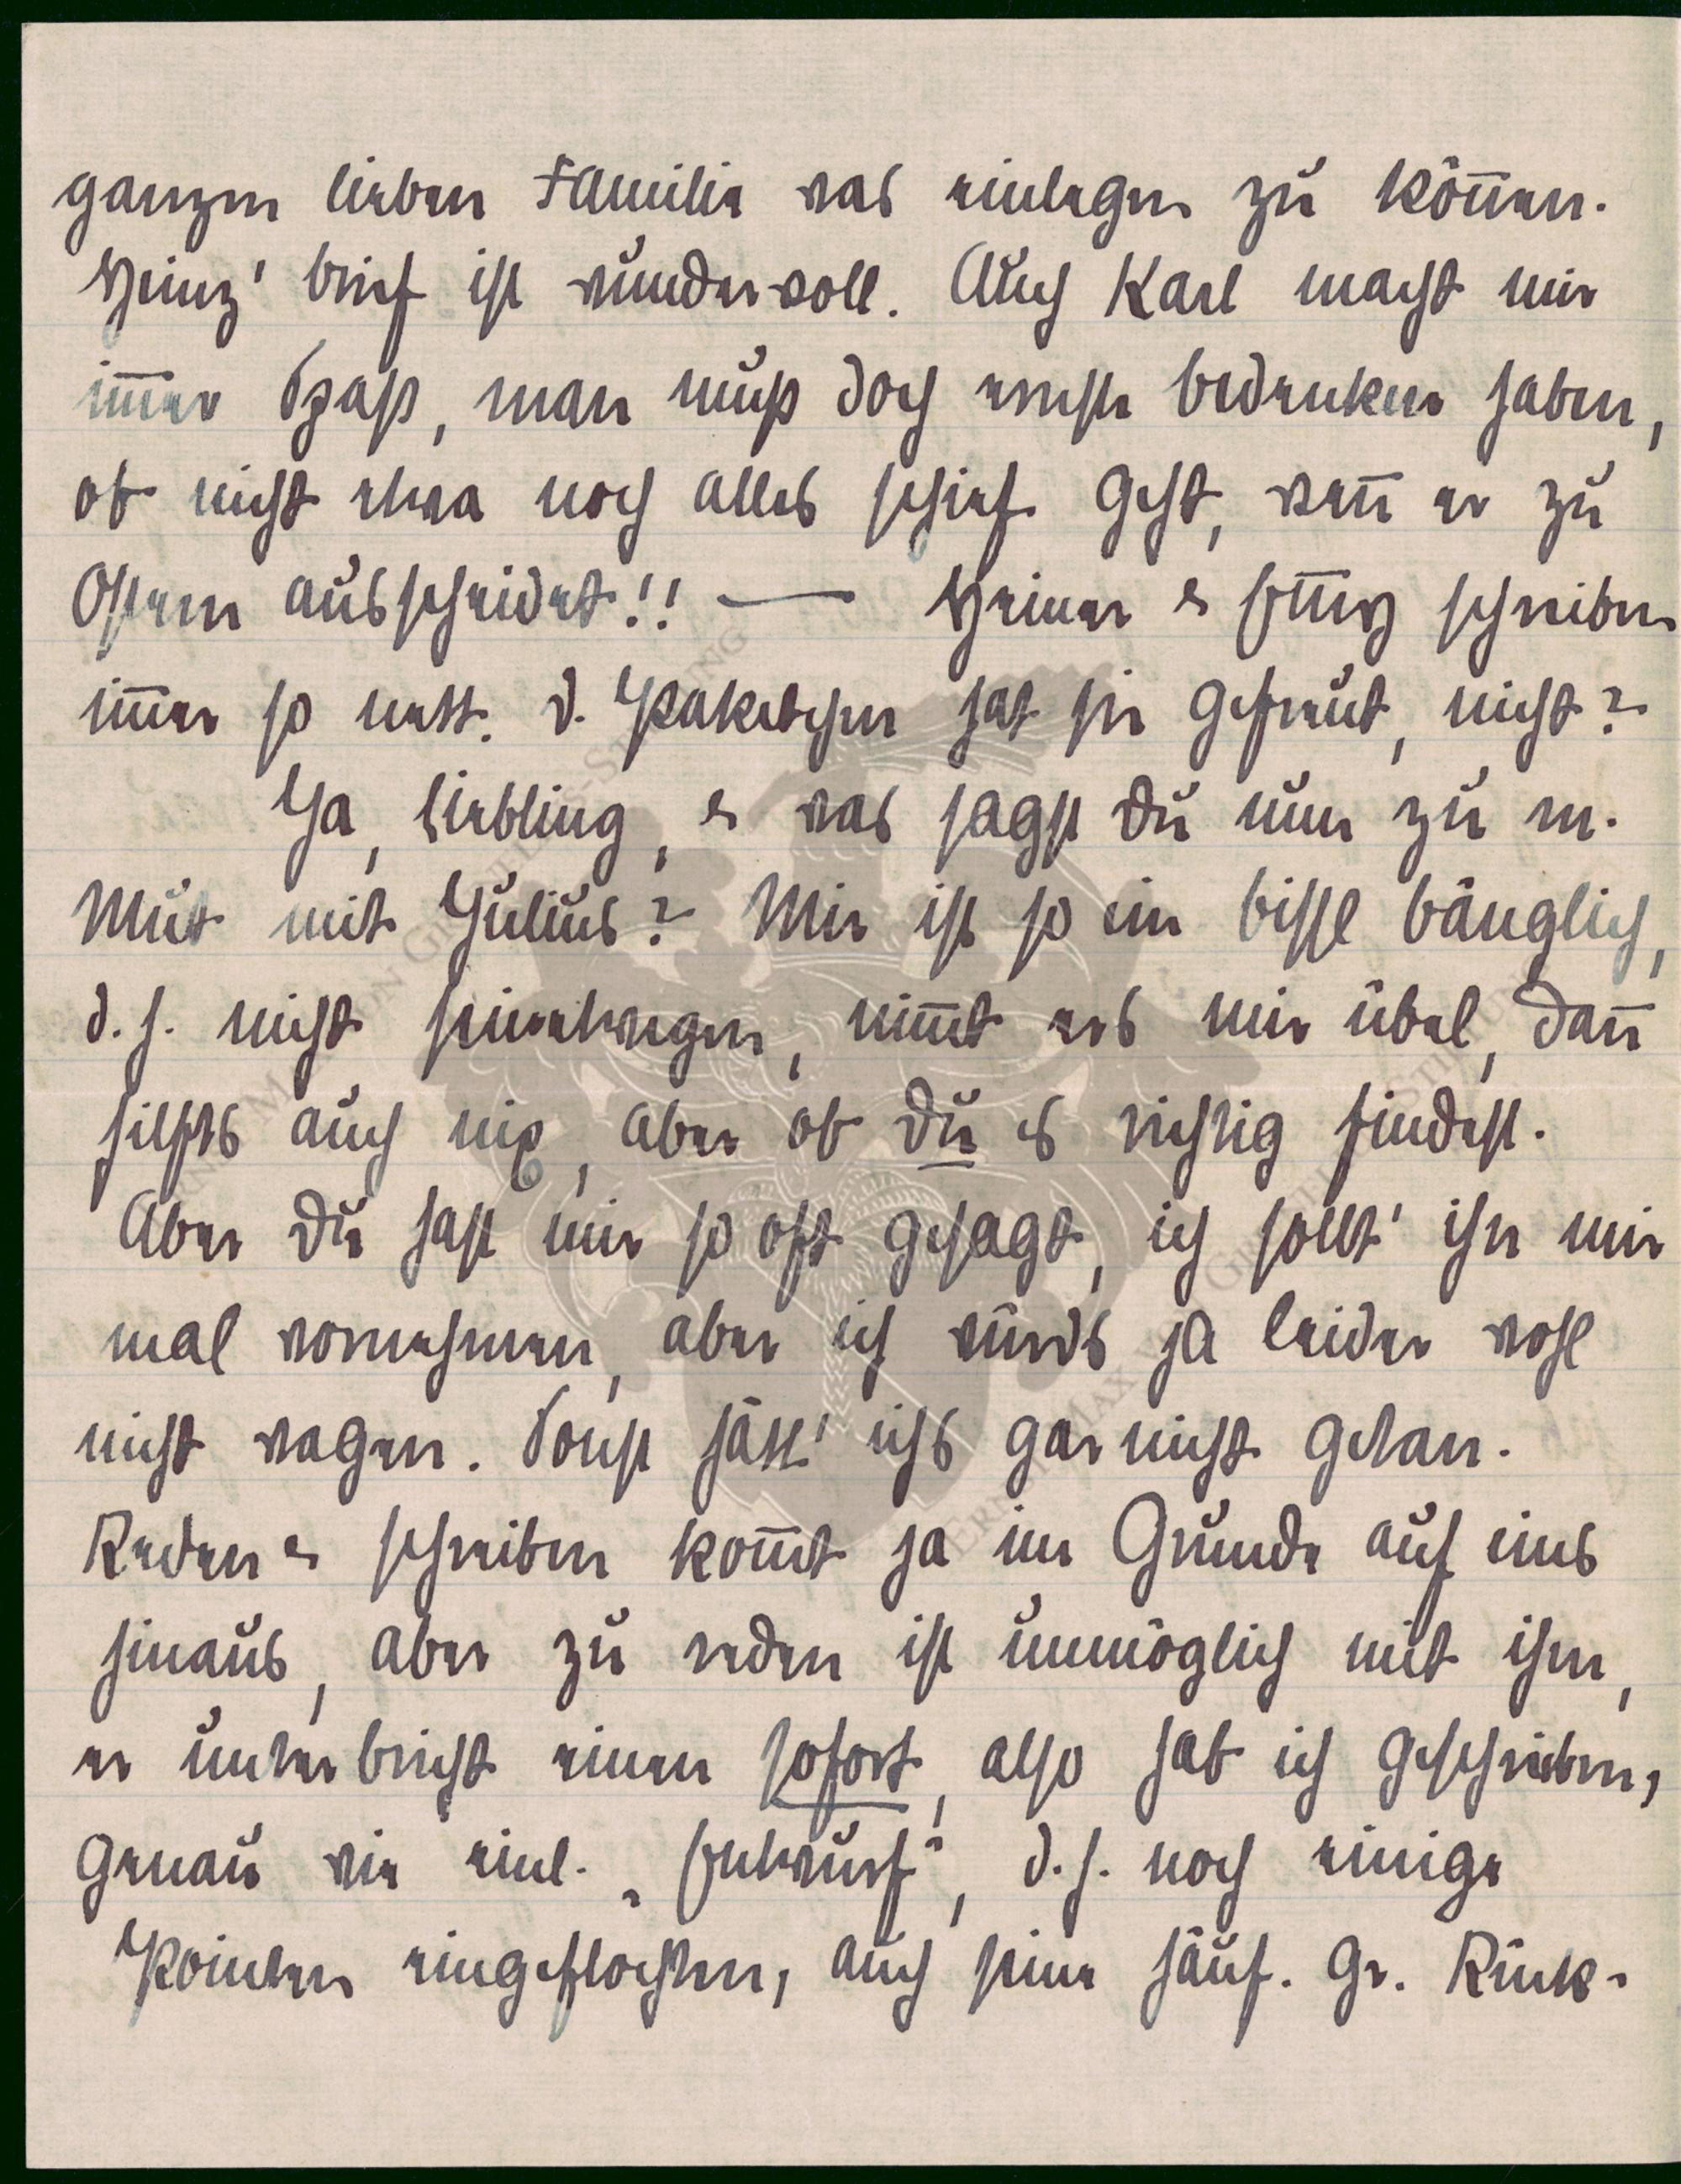 ganzen lieben Familie was einlegen zu kön̄en.
Heinz' Brief ist wundervoll. Auch Karl macht mir
im̄er Spaß, man muß doch ernste Bedenken haben,
ob nicht etwa noch alles schief geht, wen̄ er zu
Ostern ausscheidet!! — Heiner & schreiben
im̄er so nett. D. Paketchen hat sie gefreut, nicht?
Ja, Liebling, & was sagst Du nun zu m.
Mut mit Julius? Mir ist so ein bissl bänglich,
d. h. nicht seinetwegen, nim̄t ers mir übel, dan̄
hilfts auch nix, aber ob Du es richtig findest.
Aber Du hast mir so oft gesagt, ich sollt' ihn mir
mal vornehmen, aber ich würds ja leider wohl
nicht wagen. Sonst hätt' ichs gar nicht getan.
Reden & schreiben kom̄t ja im Grunde auf eins
hinaus, aber zu reden ist unmöglich mit ihm,
er unterbricht einen sofort, also hab ich geschrieben,
genau wie einl. „Entwurf", d. h. noch einige
Pointen eingeflochten, auch seine häuf. gr. Rück-